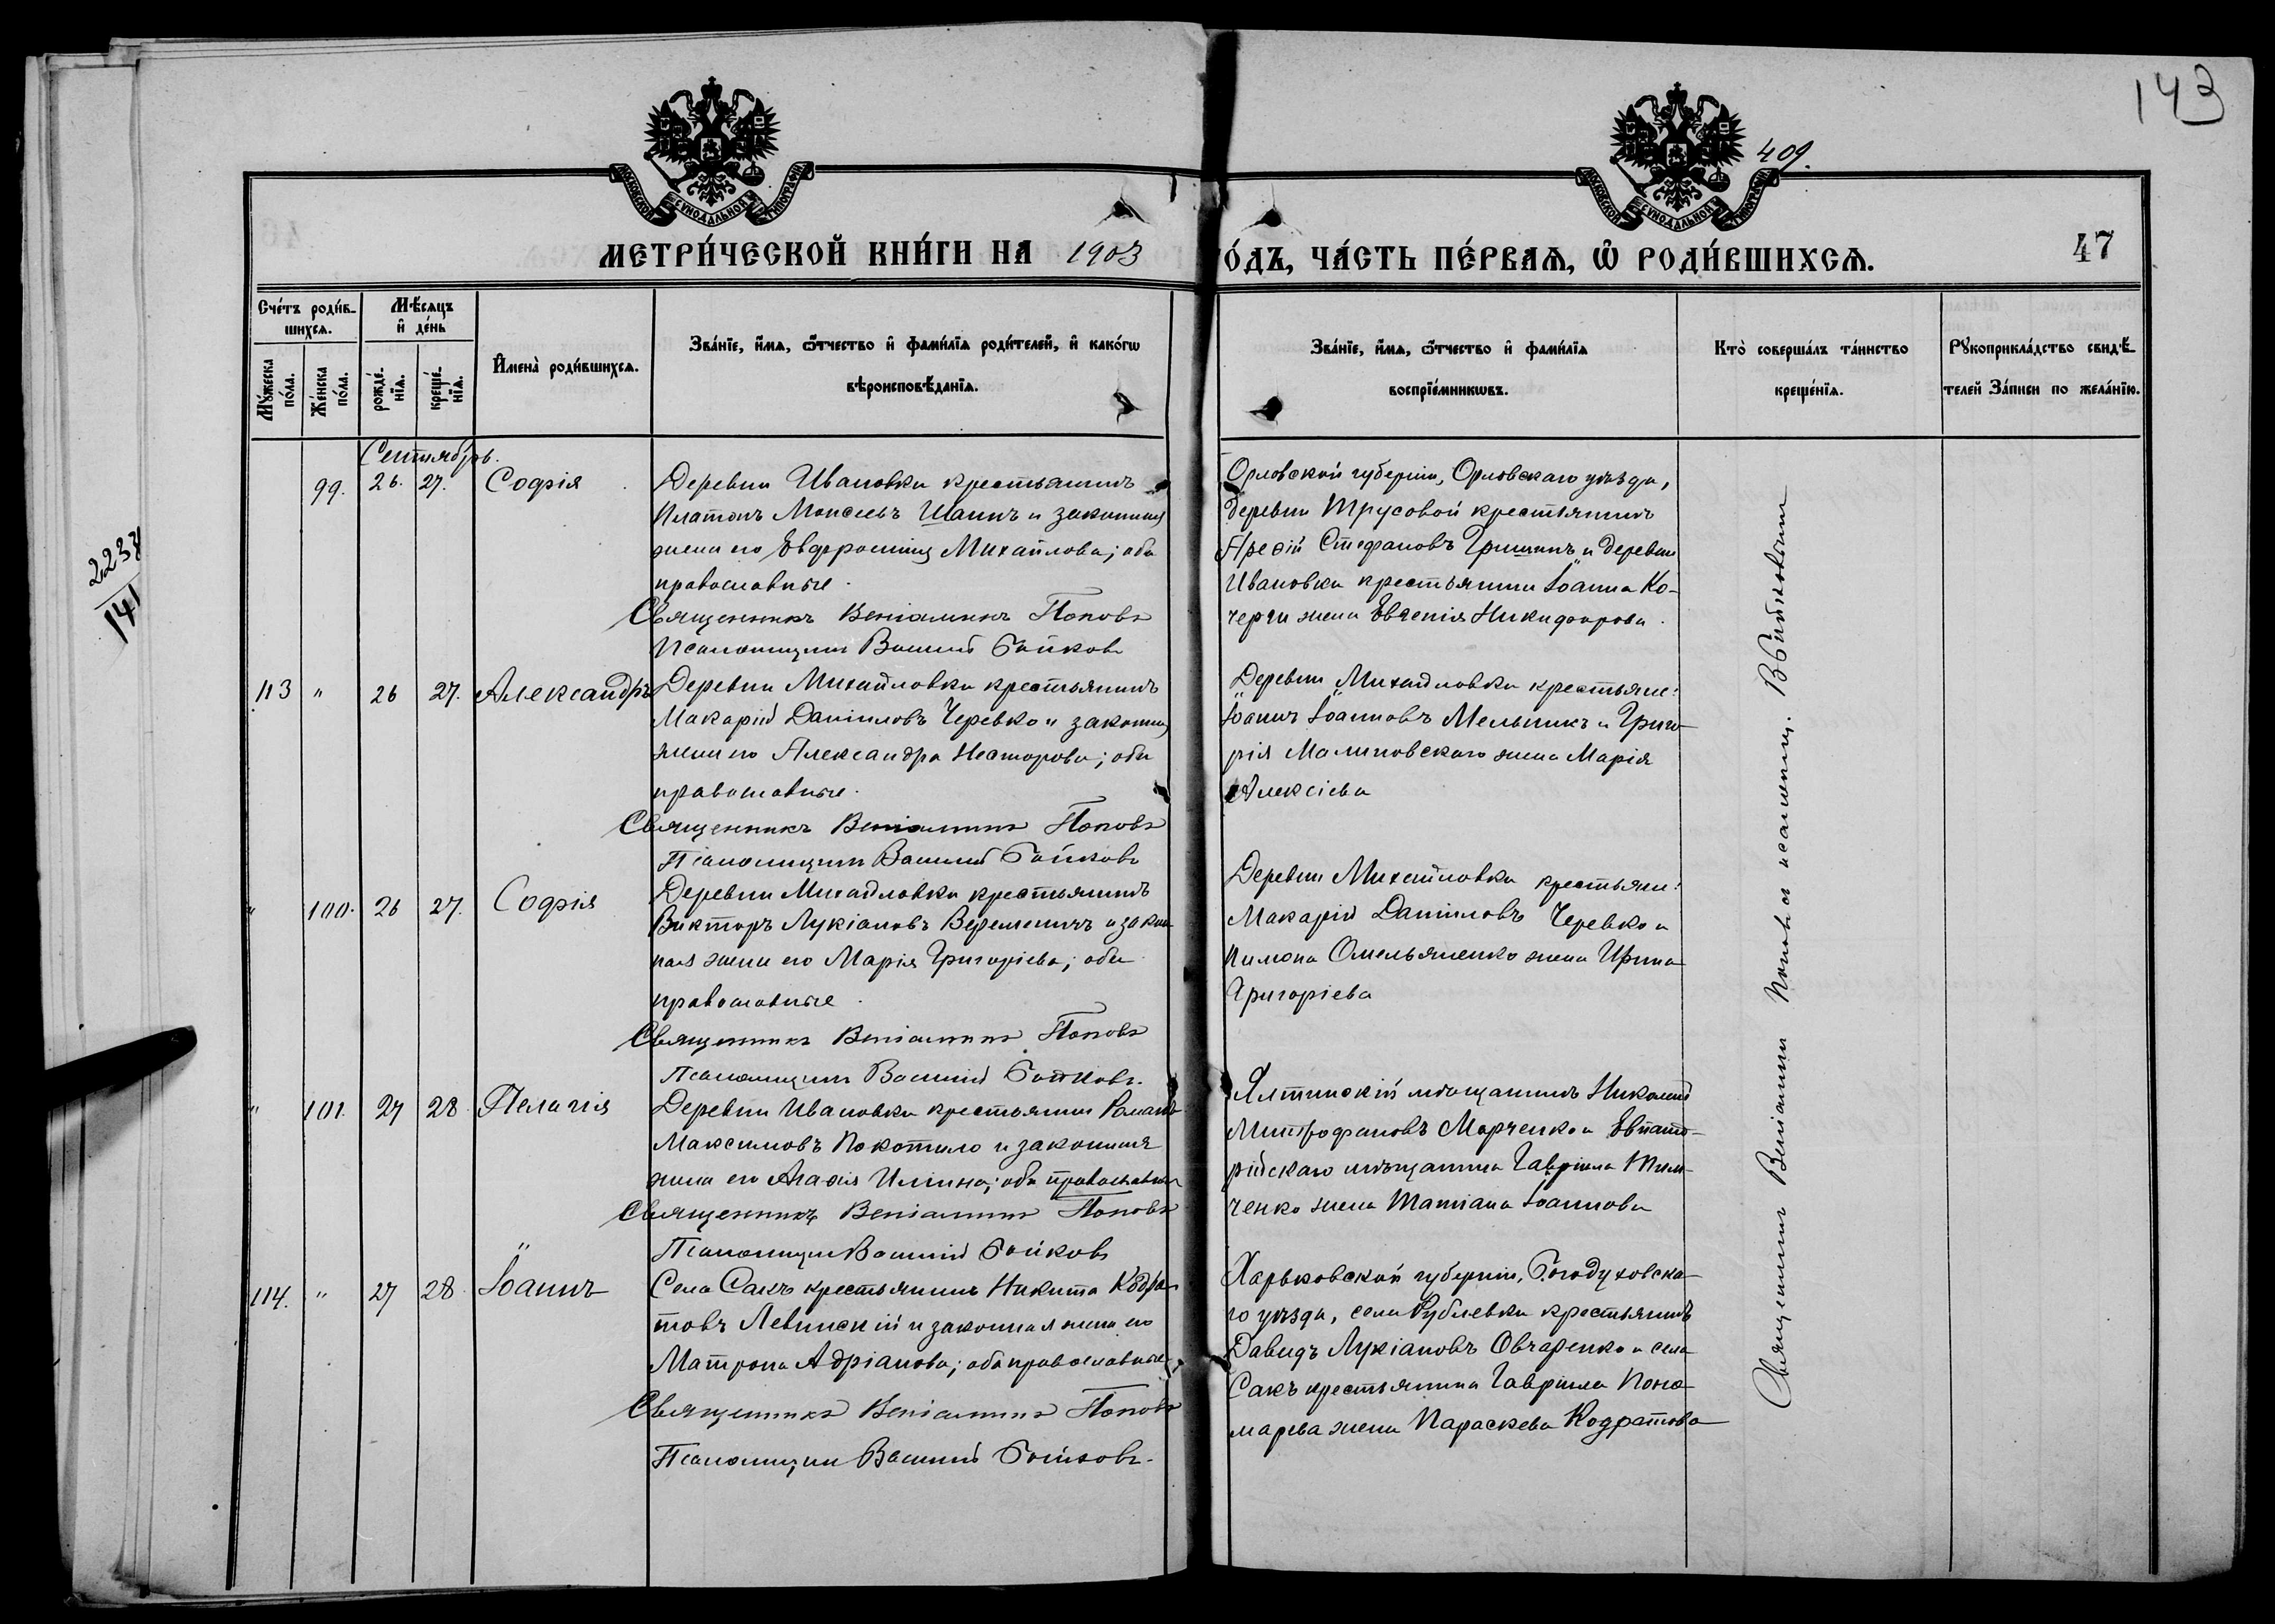 143
409.
МОСКОВСКОЙ СУНОДАЛЬНОЙ ТИПОГРАФІИ
МОСКОВСКОЙ СУНОДАЛЬНОЙ ТИПОГРАФІИ
МЕТРИ́ЧЕСКОЙ КНИ́ГИ НА 1903
О́ДЪ, ЧА́СТЬ ПЕ́РВАѦ, Ѽ РОДИ́ВШИХСѦ.
47
Сче́тъ роди́в-
шихсѧ.
Мѣ́сѧцъ
и҆ де́нь
Мꙋ́жеска
по́ла.
Же́нска
по́ла.
рожде́-
нїѧ.
креще́-
нїѧ.
И҆мена̀ роди́вшихсѧ.
Зва́нїе, и҆́мѧ, ѻ҆́тчество и҆ фами́лїѧ роди́телей, и҆ како́гѡ
вѣроисповѣ́данїѧ.
Зва́нїе, и҆́мѧ, ѻ҆́тчество и҆ фами́лїѧ
воспрїе́мникѡвъ.
Кто̀ соверша́лъ та́инство
креще́нїѧ.
Рꙋкоприкла́дство свидѣ́-
телей За́писи по жела́нїю.
2238
141
Сентябрь.
99. 26. 27. Софія
Деревни Ивановки крестьянинъ
Платонъ Моисеевъ Шаинъ и законная
жена его Евфросинія Михайлова; оба
православные.
Священникъ Веніаминъ Поповъ
Псаломщикъ Василій Бойковъ
Орловской губерніи, Орловскаго уѣзда,
деревни Трусовой крестьянинъ
Стефановъ Гришинъ и деревни
Ивановки крестьянина Іоанна Ко-
черги жена Евгенія Никифорова.
113 " 26 27. Александръ
Деревни Михайловки крестьянинъ
Макарій Даніиловъ Черевко и законная
жена его Александра Несторова; оба
православные.
Священникъ Веніаминъ Поповъ
Псаломщикъ Василій Бойковъ
Деревни Михайловки крестьяне:
Іоаннъ Іоанновъ Мельникъ и Григо-
рія Малиновскаго жена Марія
Алексіева
" 100. 26 27. Софія
Деревни Михайловки крестьянинъ
Викторъ Лукіановъ Веремеичъ и закон-
ная жена его Марія Григоріева; оба
православные.
Священникъ Веніаминъ Поповъ
Псаломщикъ Василій Бойковъ.
Деревни Михайловки крестьяне:
Макарій Даніиловъ Черевко и
Пимона Омельяненко жена Ирина
Григоріева
" 101. 27 28 Пелагія
Деревни Ивановки крестьянинъ Романъ
Максимовъ Покотило и законная
жена его Агафія Иліина; оба православные
Священникъ Веніаминъ Поповъ
Псаломщикъ Василій Бойковъ
Ялтинскій мѣщанинъ Николай
Митрофановъ Марченко и Евпато-
рійскаго мѣщанина Гавріила Тим-
ченко жена Татіана Іоаннова
114. " 27 28. Іоаннъ
Села Сакъ крестьянинъ Никита Кодра-
товъ Левинскій и законная жена его
Матрона Адріанова; оба православные.
Священникъ Веніаминъ Поповъ
Псаломщикъ Василій Бойковъ.
Харьковской губерніи, Богодуховска-
го уѣзда, села Рублевки крестьянинъ
Давидъ Лукіановъ Овчаренко и села
Сакъ крестьянина Гавріила Поно-
марева жена Параскева Кодратова
Священникъ Веніаминъ Поповъ съ псаломщ. В. Бойковымъ